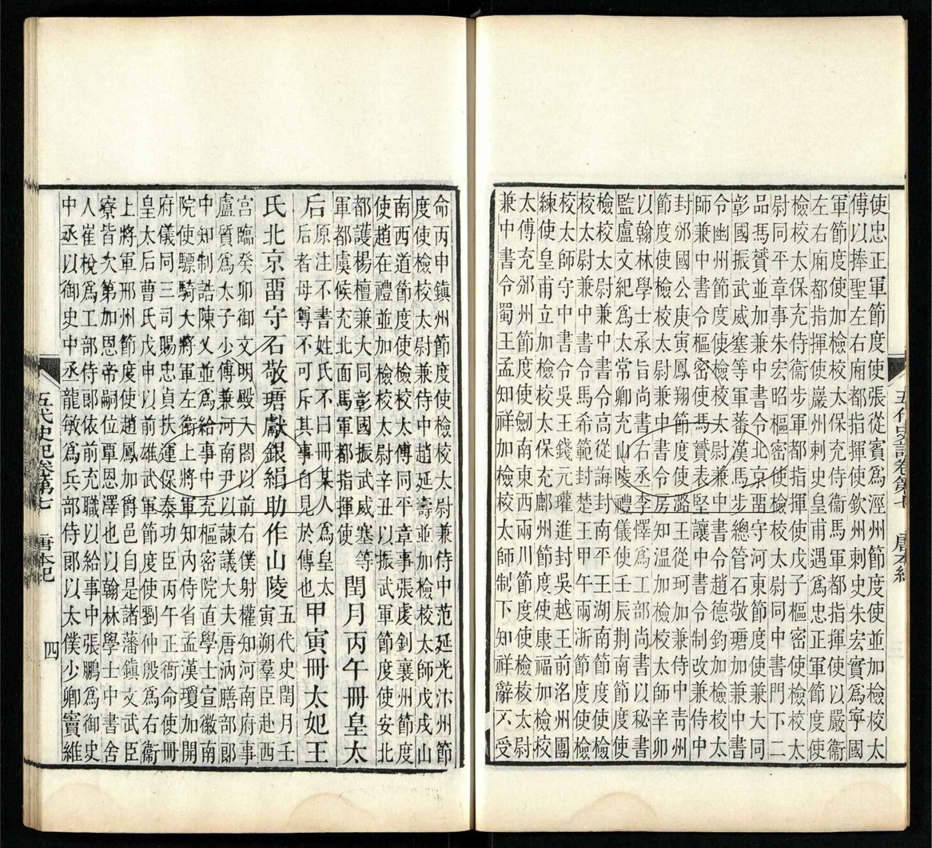 使忠正軍節度使張從賓爲涇州節度使並加檢校太
傅以捧聖左右廂都指揮使欽州刺史朱宏實爲寧國
軍節度使加檢校太保充侍衞馬軍都指揮使以嚴衞
左右廂都指揮使巖州刺史皇甫遇爲忠正軍節度使
檢校太保充侍衞步軍都指揮使戊子樞密使檢校太
尉同平章事朱宏昭樞密使檢校太同中書門下二
品馮贇並加兼中書令北京畱守河東節度使兼大同
彰國振武威塞等軍蕃漢馬步總管石敬瑭加兼中書
令幽州節度使檢校太尉兼中書令趙德鈞加檢校太
師兼中書令樞密使馮贇表堅讓中書令制改兼侍中
封邠國公庚寅鳳翔節度使潞王從珂加兼侍中靑州
節度使檢校太尉兼中書令房知温加檢校太師辛卯
以翰林學士承旨尚書右丞李懌爲工部尚書以秘書
監盧文紀爲太常卿充山陵禮儀使壬辰荆南節度使
檢校太尉兼中書令高從誨封南平王湖南節度使檢
校太尉兼中書令馬希範封楚王甲午兩浙節度使檢
校太師守中書令吳王錢元瓘進封吳越王前洺州團
練使皇甫立加檢校太保充鄜州節度使康福加檢校
太傅充邠州節度使劍南東西兩川節度使檢校太尉
兼中書令蜀王孟知祥加檢校太師制下知祥辭不受
五代史記卷第七 唐本紀
命丙申鎭州節度使檢校太尉兼侍中范延光汴州節
度使檢校太尉兼侍中趙延壽並加檢校太師戊戌山
南西道節度使檢校太傅同平章事張虔釗襄州節度
使趙在禮並加檢校太尉辛丑以振武軍節度使安北
都護楊檀兼大同彰國振武威塞等
軍都虞候充北面馬軍都指揮使
閏月丙午冊皇太
后
原注不書姓氏不曰冊某人爲皇太
后后者母尊不可斥其事於傳也
甲寅冊太妃王
氏北京畱守石敬瑭獻銀絹助作山陵
五代史閏月壬
寅朔羣臣赴西
宫臨癸卯御文明殿入閤以前右僕射權知河南府事
盧質爲太子少傅兼河南尹以諫議大夫唐汭膳部郎
中知制誥陳乂並爲給事中充樞密院直學士宣徽南
院使驃騎大將軍左衞上將軍知内侍省孟漢瓊加開
府儀同三司賜忠貞扶運保泰功臣丙午正衙命使冊
皇太后曹氏戊申以前雄武軍節度使劉仲殷爲右衞
上將軍邢州節度使趙鳳加爵邑自是諸藩鎭文武臣
寮皆次第加恩帝嗣位覃恩澤也以翰林學士中書舍
人崔梲爲工部侍郎依前充職以給事中張鵬爲御史
中丞以御史中丞龍敏爲兵部侍郎以太僕少卿竇維
五代史記卷第七 唐本紀 四